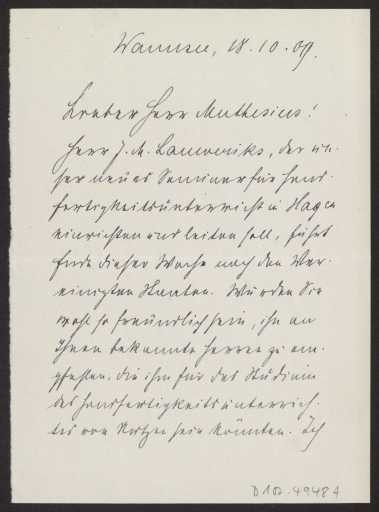 Wannsee, 18.10.09.
Lieber Herr Muthesius!
Herr J. M. Lauweriks, der un-
ser neues Seminar für Hand-
fertigkeitsunterricht in Hagen
einrichten und leiten soll, fährt
Ende dieser Woche nach den Ver-
einigten Staaten. Würden Sie
wohl so freundlich sein, ihn an
Ihnen bekannte Herren zu em-
pfehlen, die ihm für das Studium
des Handfertigkeitsunterrich-
tes von Nutzen sein könnten. Ich
D 102-4948 A